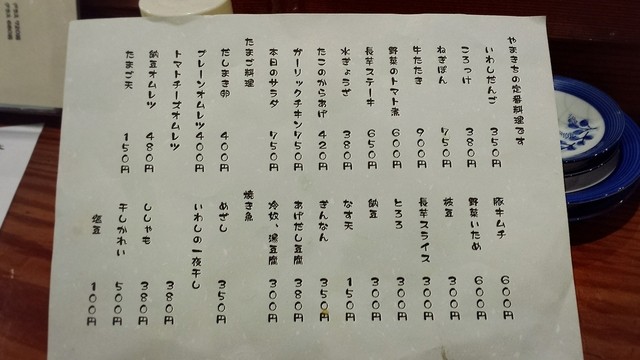 やまきちの定番料理です
いわしだんご 350円
ころっけ 380円
ねぎぽん 750円
牛たたき 900円
野菜のトマト煮 600円
長芋ステーキ 650円
水ぎょうざ 380円
たこのからあげ 420円
ガーリックチキン 750円
本日のサラダ 750円
たまご料理
だしまき卵 400円
プレーンオムレツ 400円
トマトチーズオムレツ
納豆オムレツ 480円
たまご天 150円
豚キムチ 600円
野菜いため 600円
枝豆 300円
長芋スライス 300円
とろろ 300円
納豆 300円
なす天 150円
ぎんなん 350円
あげだし豆腐 380円
冷奴、湯豆腐 300円
焼き魚
めざし 350円
いわしの一夜干し
380円
ししゃも 380円
干しかれい 500円
塩豆 100円